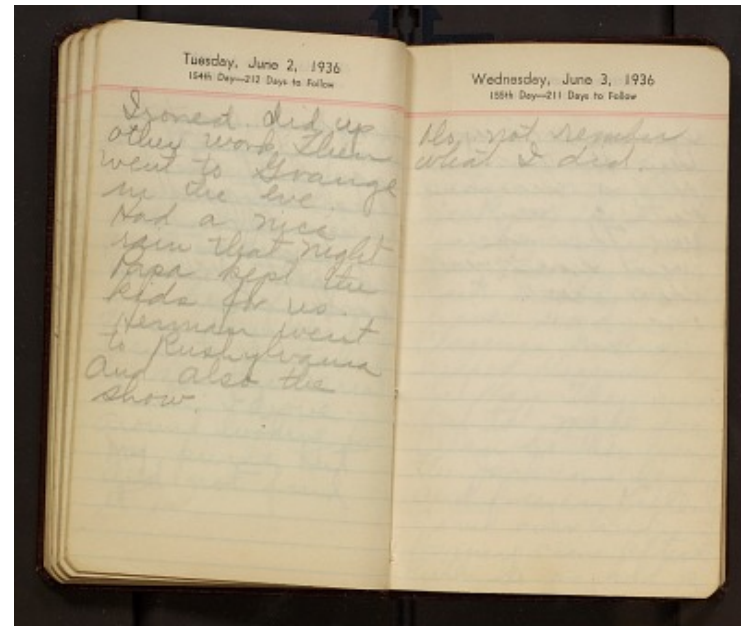 Tuesday, June 2, 1936
154th Day—212 Days to Follow
Ironed did up
other work then
went to Grange
in the eve.
Had a nice
rain that night
Papa kept the
kids for us.
Herman went
to Rushylvania
and also the
show.
Wednesday, June 3, 1936
155th Day—211 Days to Follow
Do not remember
what I did.